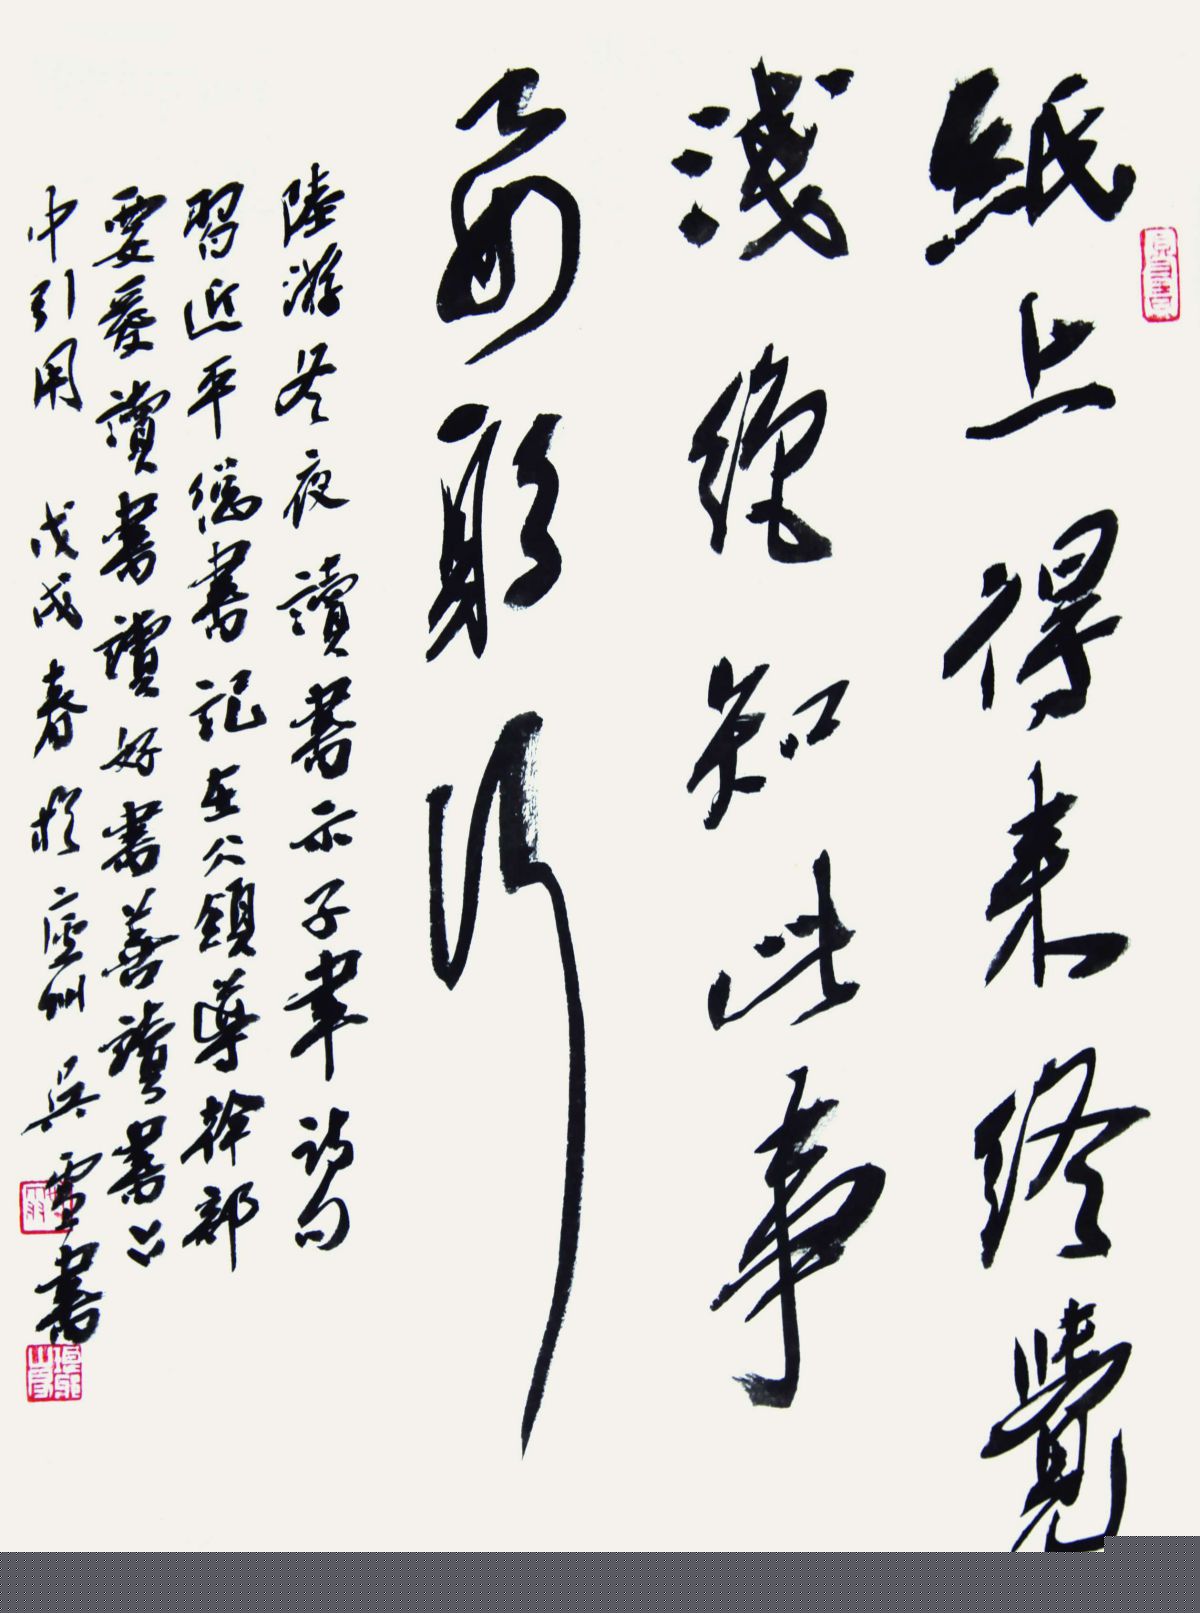 紙上得来终覺
淺绝知此事
要躬行
陸游冬夜讀書示子聿詩句
習近平總書記在《領導幹部
要愛讀書讀好書善讀書》
中引用 戊戌春於廬州吴雪書